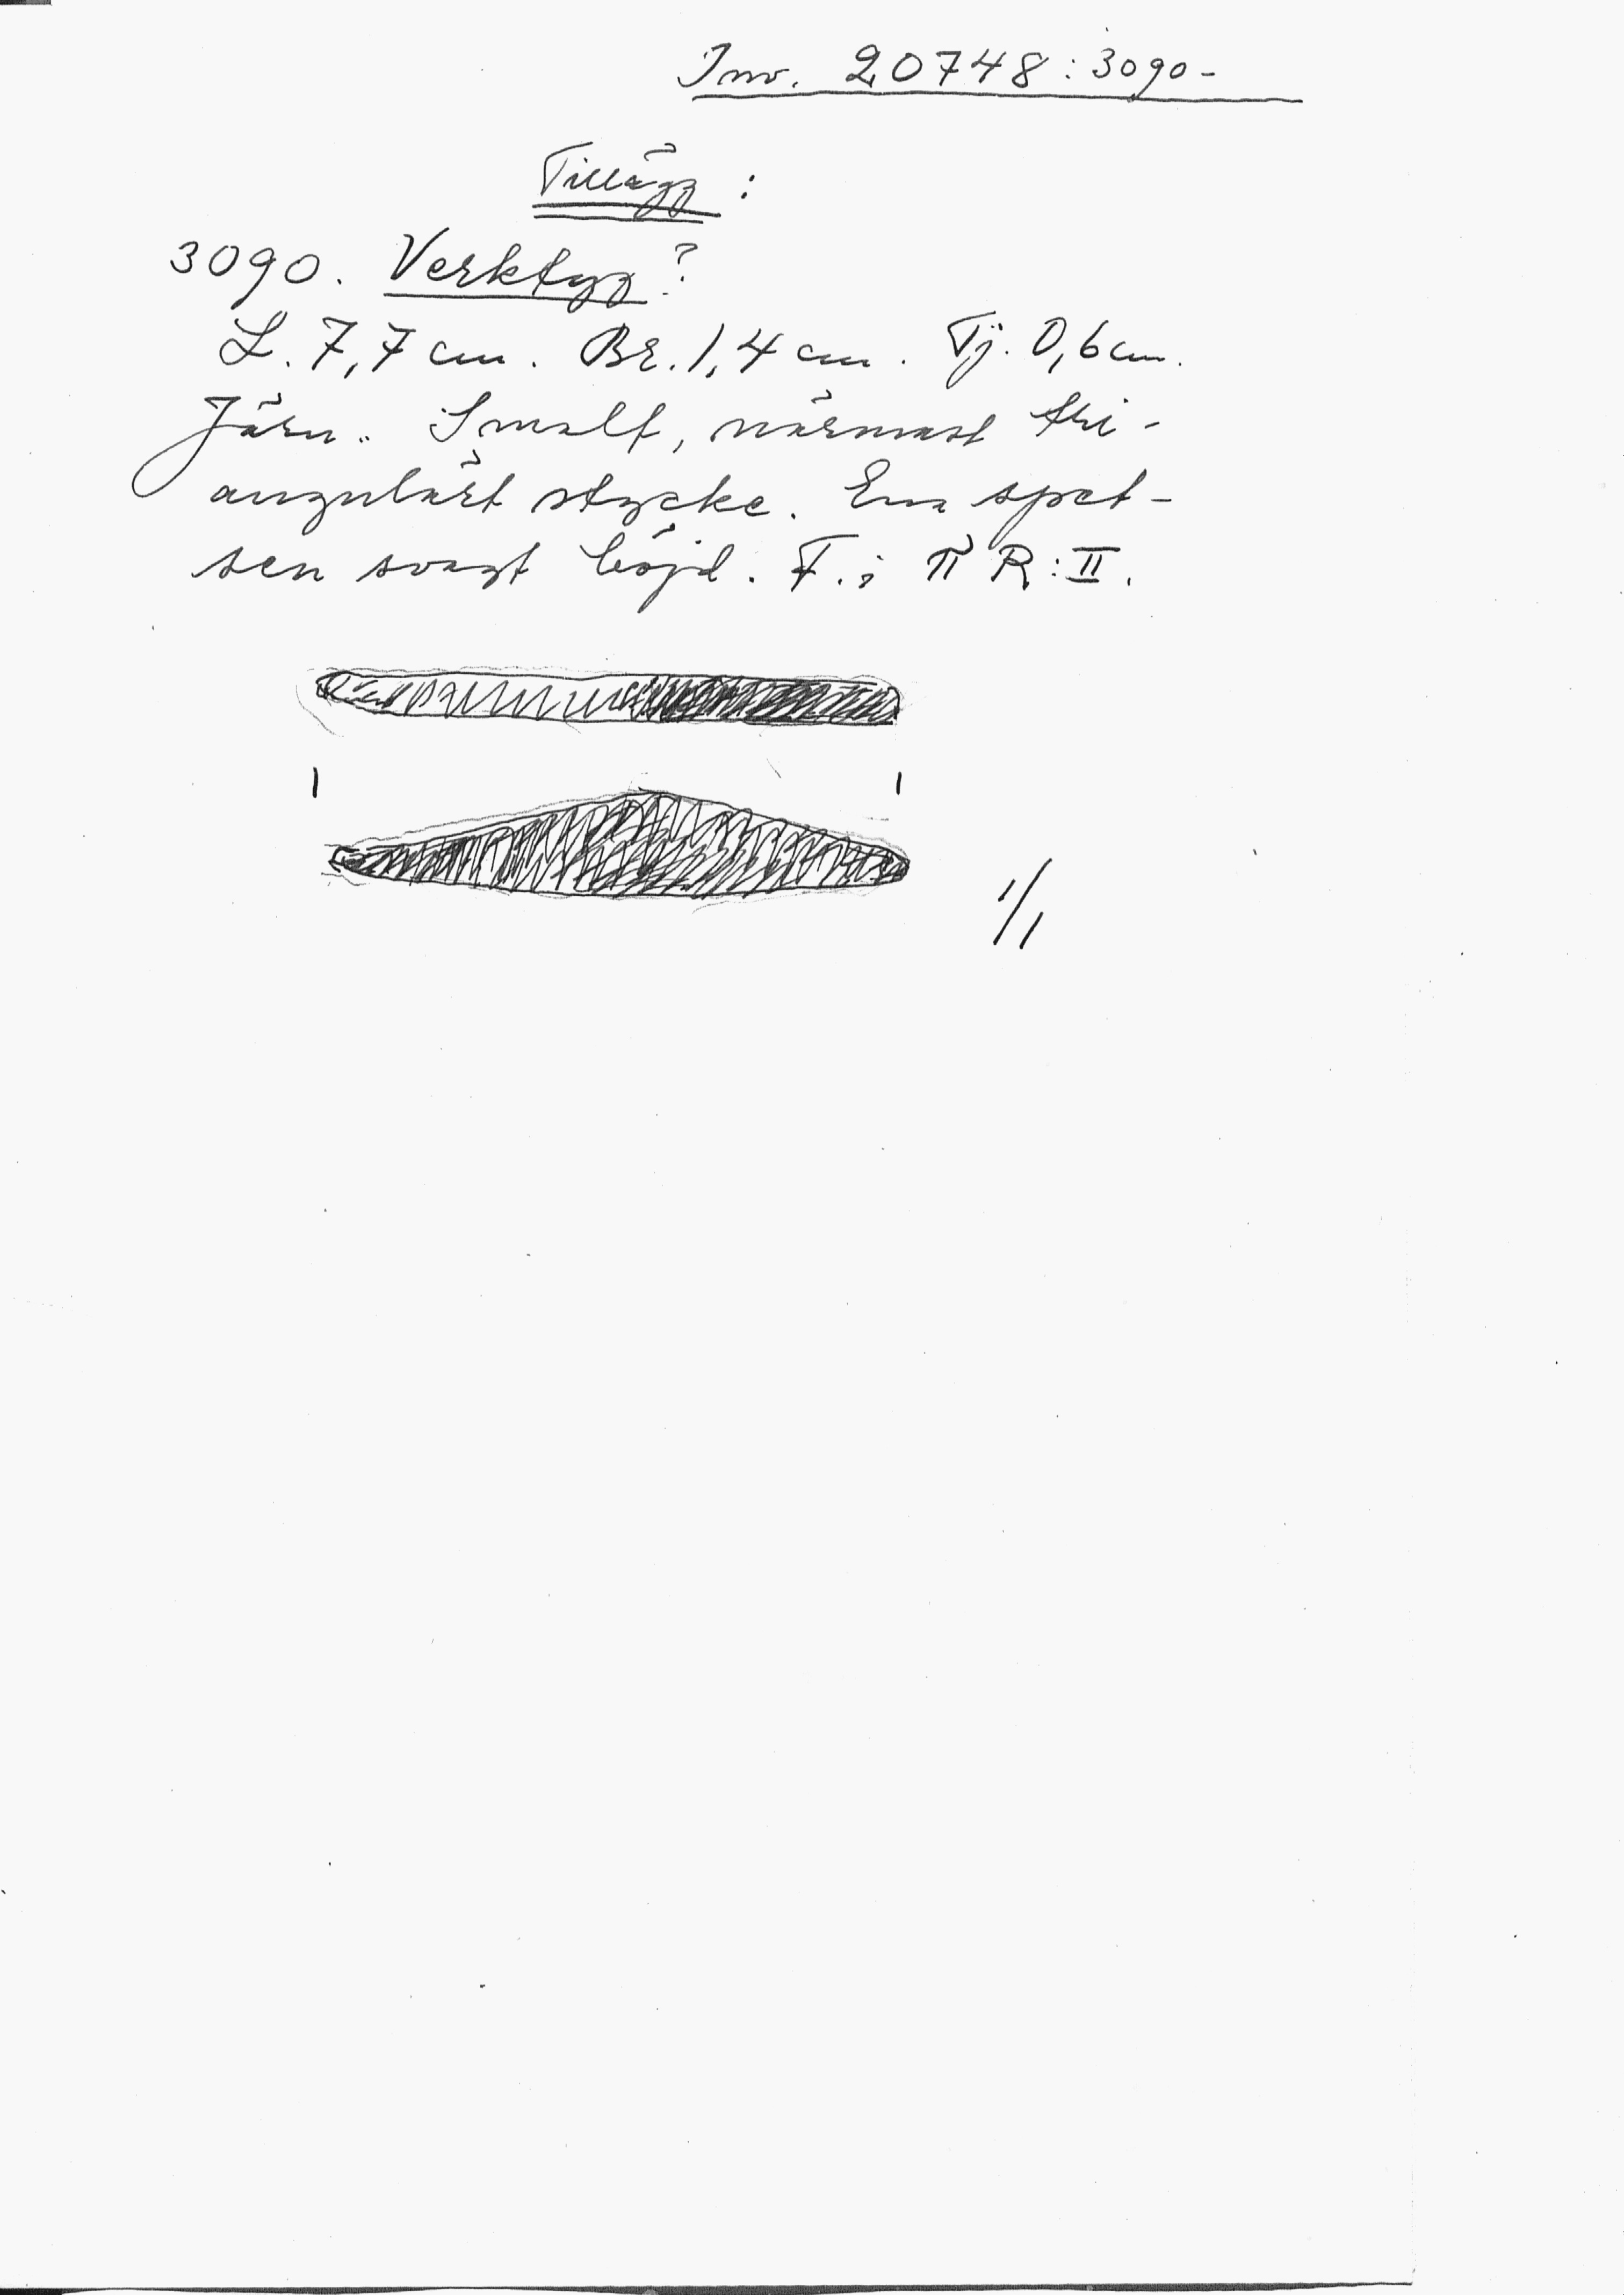 Inv. 20748:3090-
Tillägg:
3090. Verktyg?
L. 7,7 cm. Br. 1,4 cm. Tj. 0,6 cm.
Järn. Smalt, närmast tri-
angulärt stycke. Ena spet-
sen svagt böjd. F. i R:II.
1/1